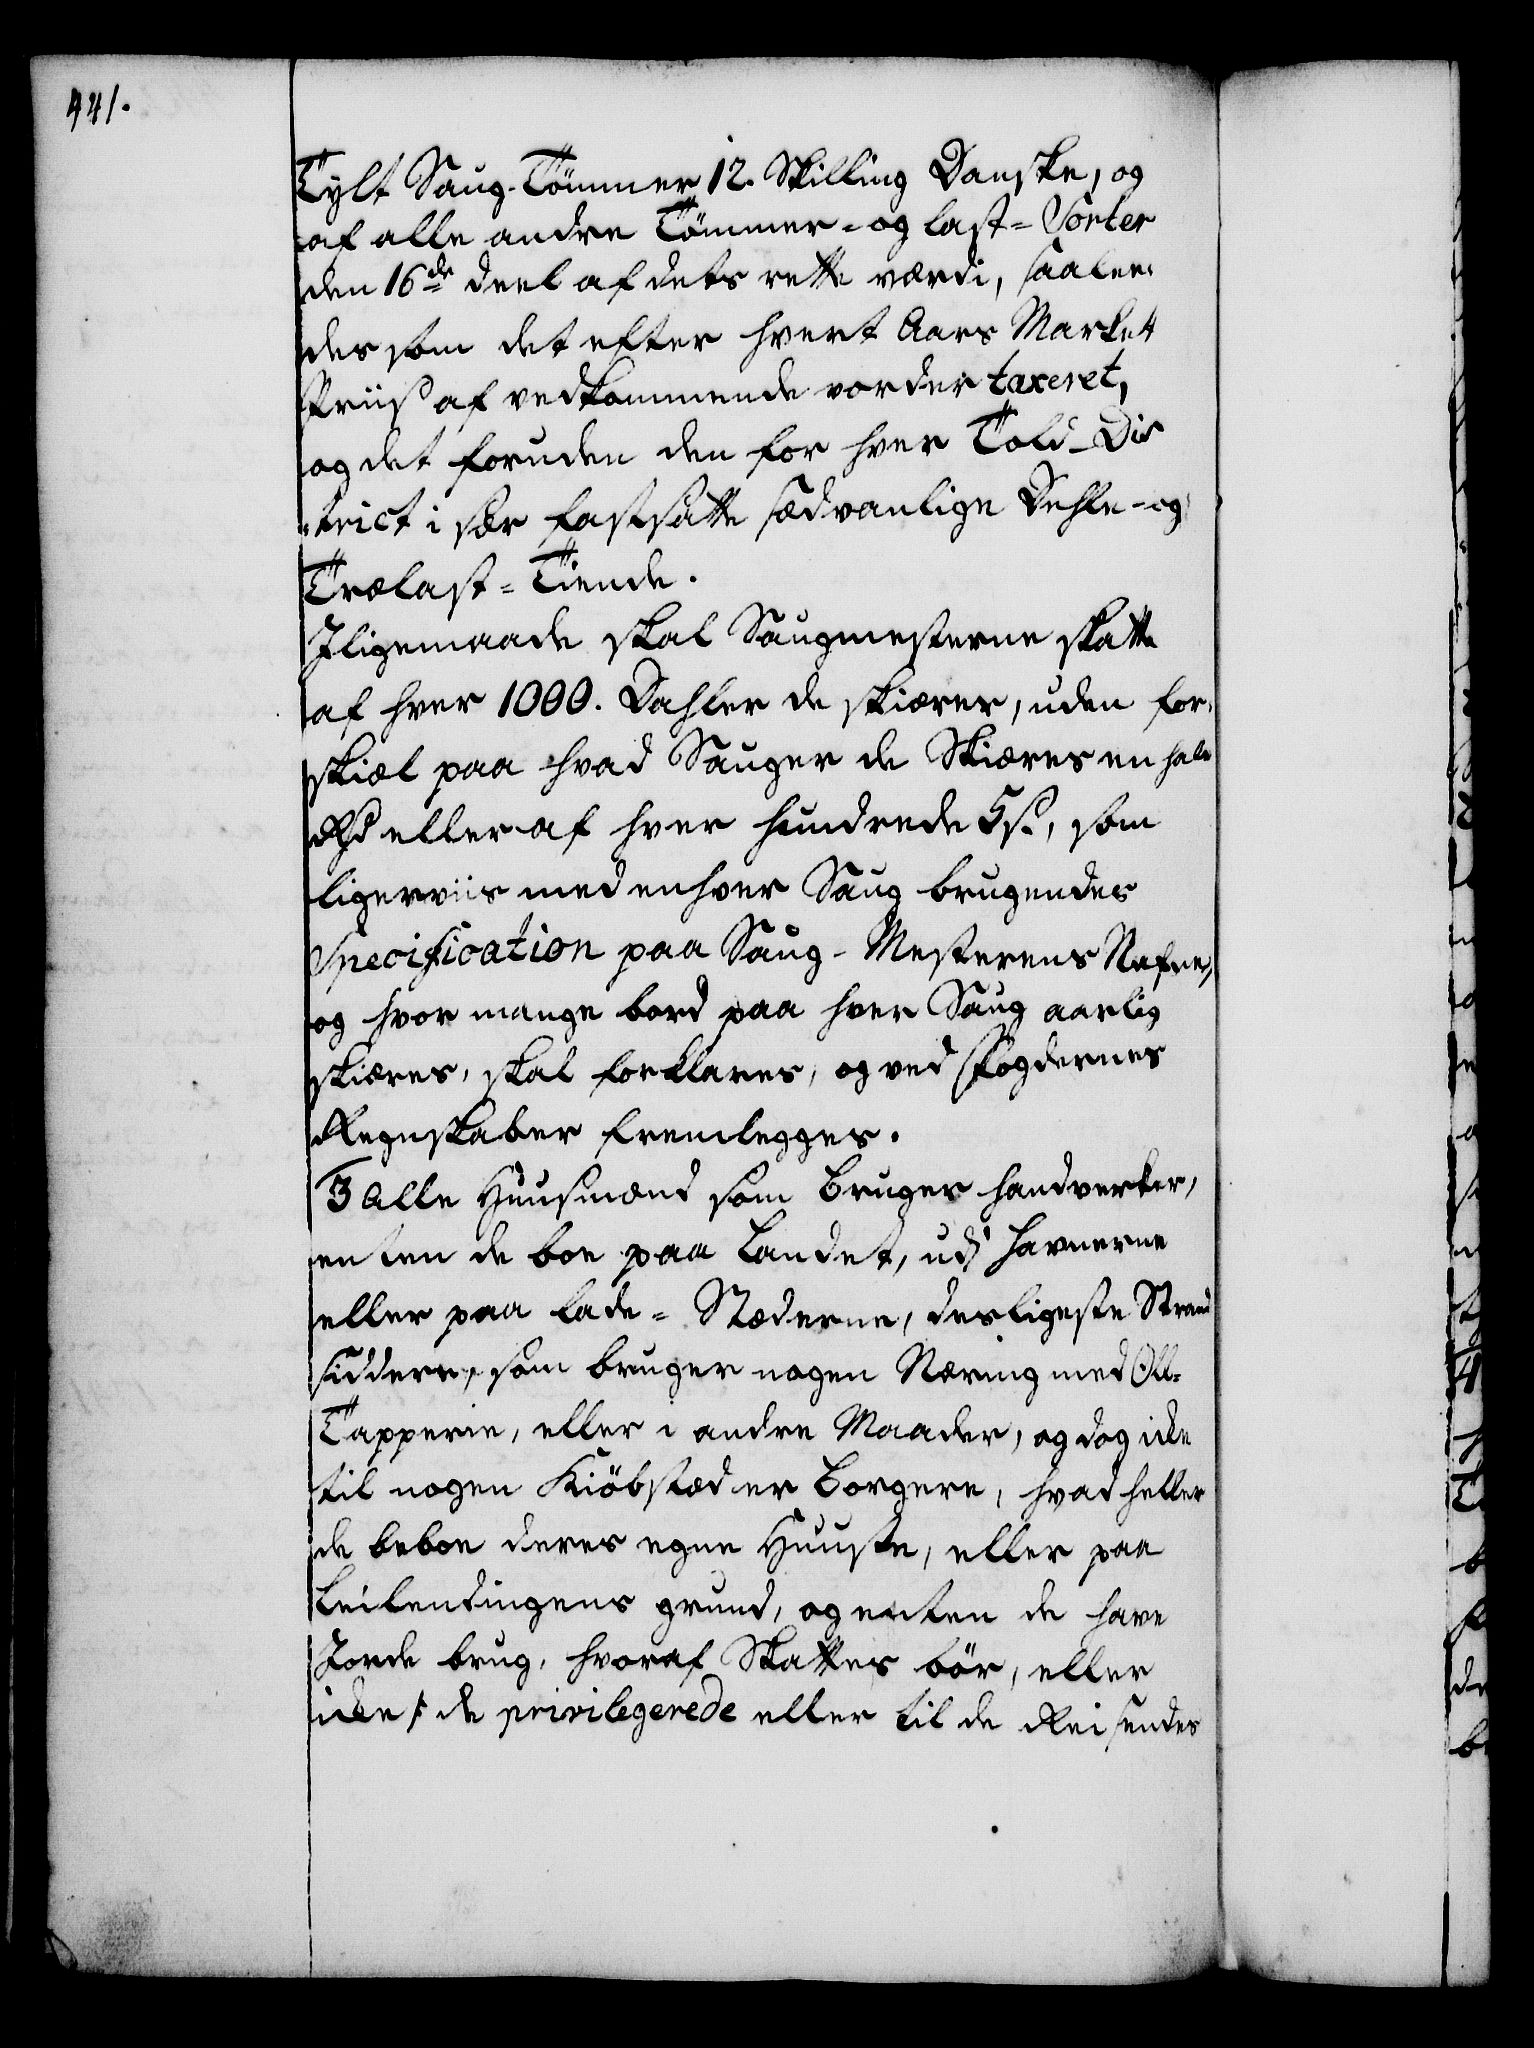 441.
Tylt Saug-Tömmer 12. Skilling Danske, og
af alle andre Tömmer- og last-Sorter
den 16de deel af dets rette værdi, saalee-
des som det efter hvert Aars Market
Priis af vedkommende vorder taxeret,
og det foruden den for hver Told-Dis
trict i sær fastsatte sædvanlige Dehle- og
Trælast-Tiende.
Iligemaade skal Saugmesterne skatte
af hver 1000. Dahler de skiærer, uden for-
skiæl paa hvad Sauger de Skiæres en halv
Rd eller af hver hundrede 5 s., som
ligerviis med enhver Saug brugendes
Specification paa Saug-Mesterens Nafne,
og hvor mange bord paa hver Saug aarlig
skiæres, skal forklares, og ved Fogdernes
Regnskaber fremlegges.
3 Alle Huusmænd som Bruger handverker,
enten de boe paa Landet, udj havnerne
eller paa lade-Stæderne, desligeste Strand
siddere, som bruger nogen Næring med Öll-
Tapperie, eller i andre Maader, og dog icke
til nogen Kiöbstæd er Borgere, hvad heller
de beboe deres egne Huuse, eller paa
Leilendingens grund, og enten de have
Jorde brug, hvoraf Skattes bör, eller
icke /: de privilegerede eller til de Reisendes